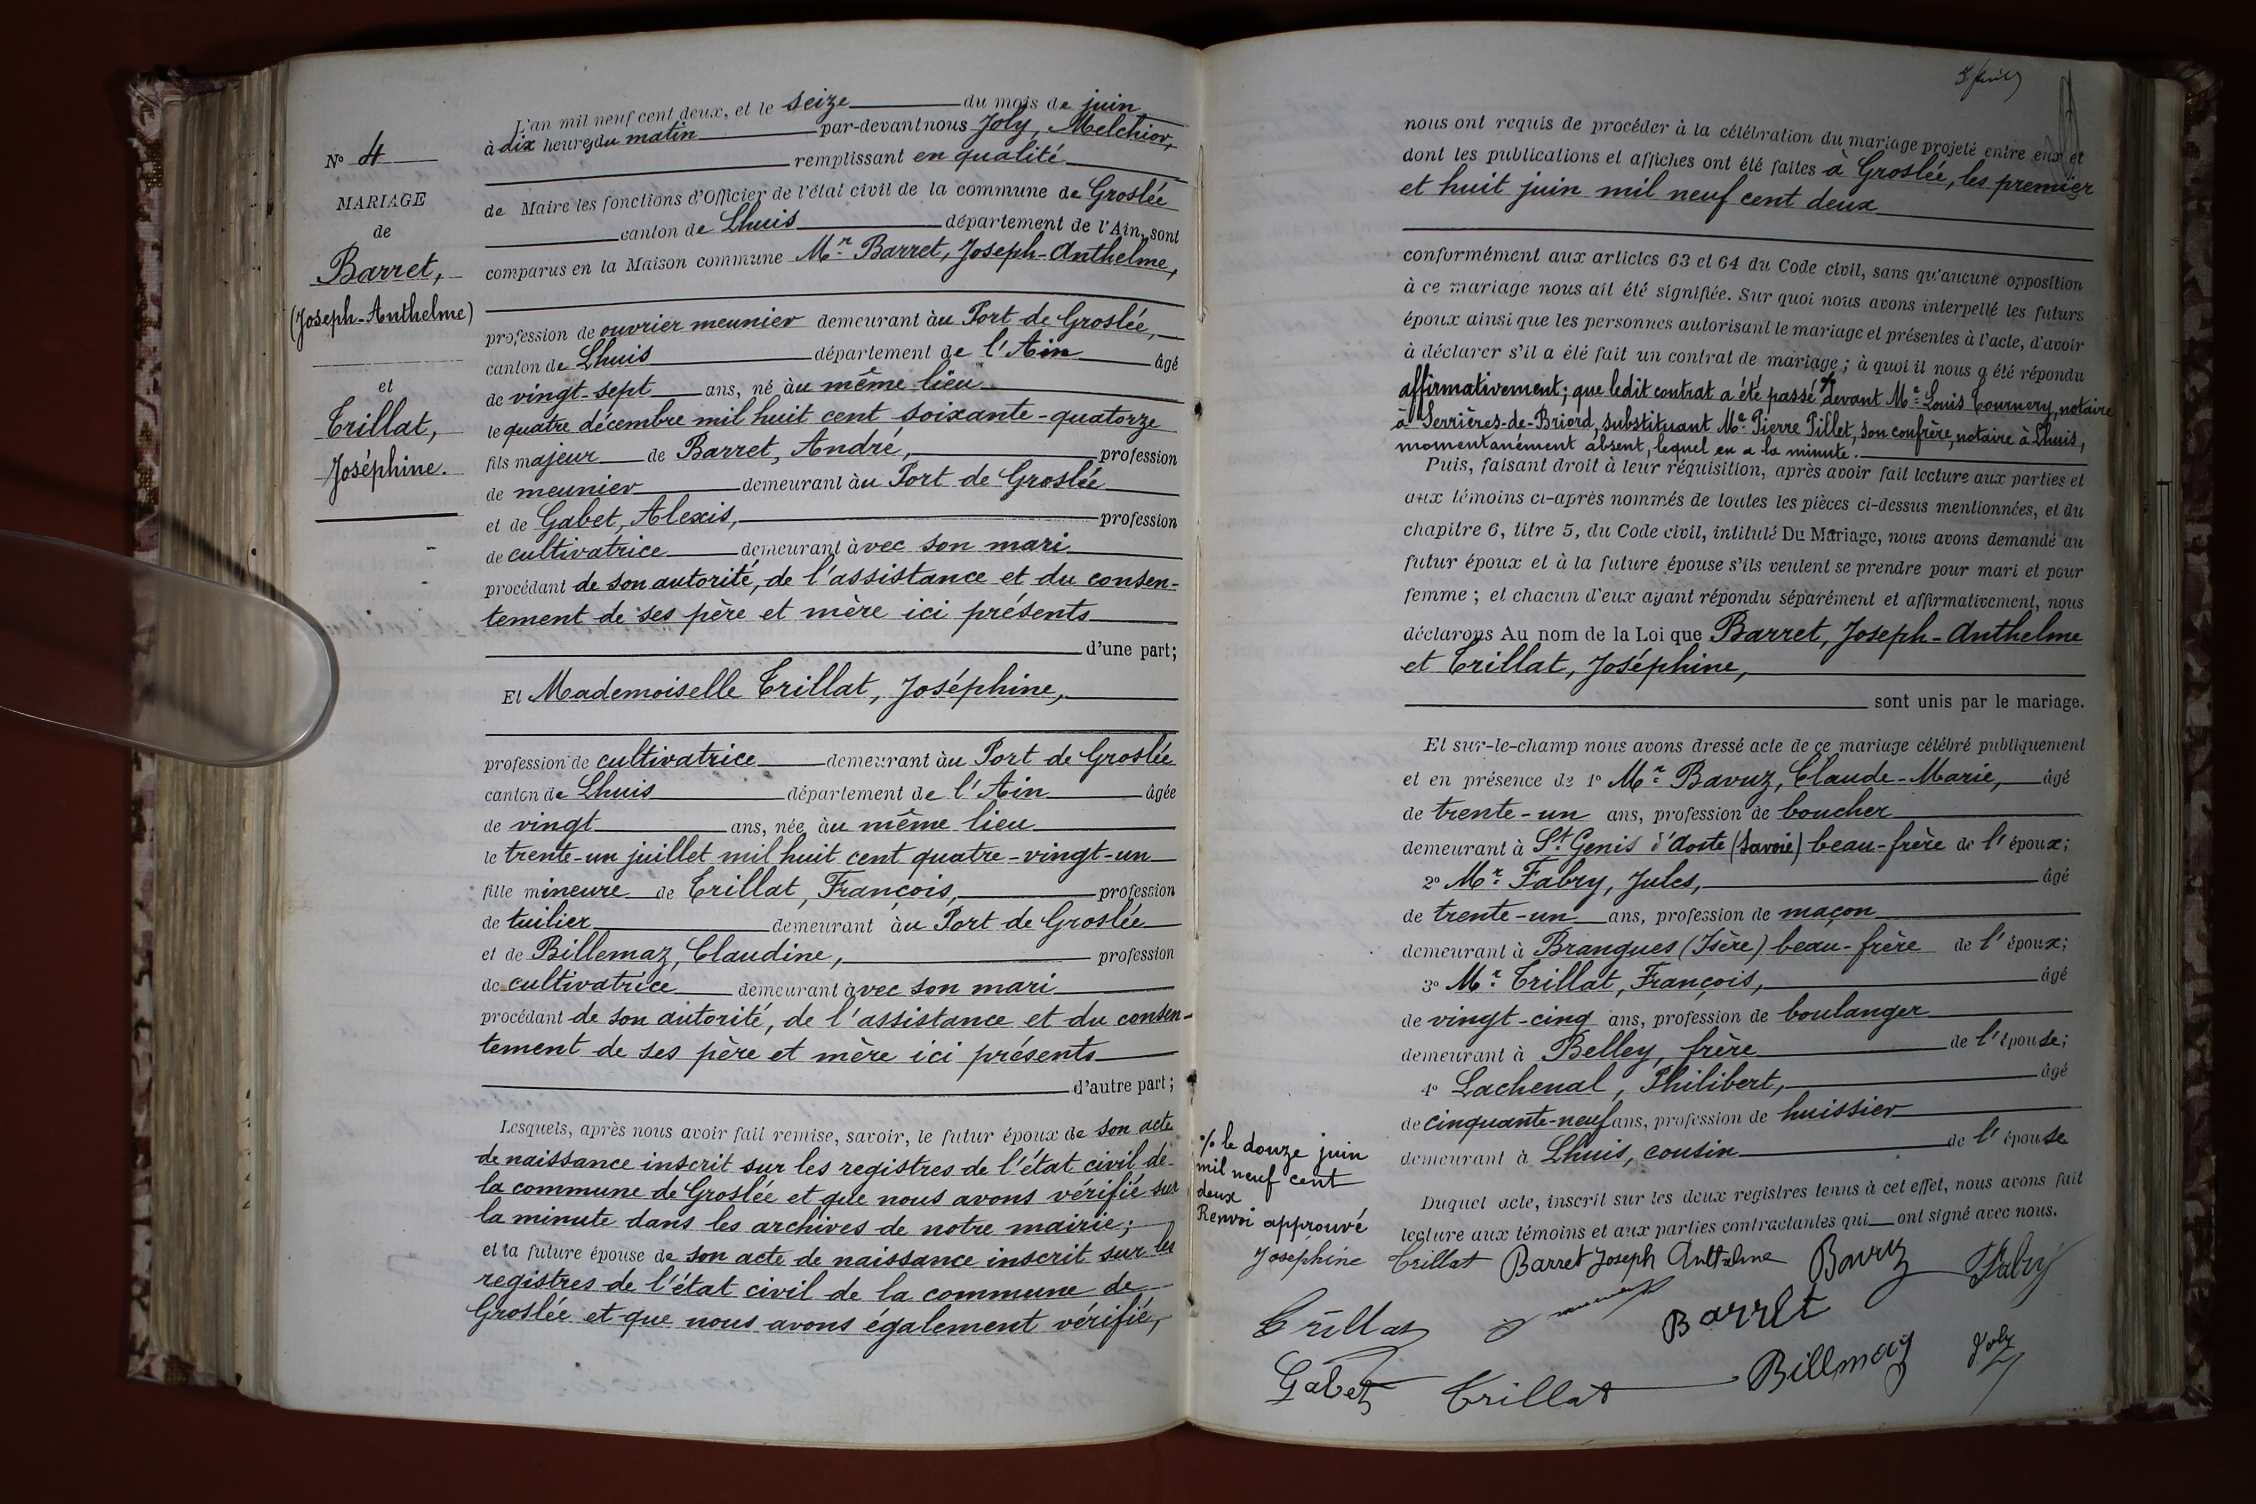 L'an mil neuf cent deux, et le seize du mois de juin
à dix heures du matin par-devant nous Joly, Melchior,
remplissant en qualité
de Maire les fonctions d'Officier de l'état civil de la commune de Groslée
canton de Lhuis département de l'Ain, sont
comparus en la Maison commune Mr Barret, Joseph-Anthelme,
profession de ouvrier meunier demeurant au Port de Groslée,
canton de Lhuis département de l'Ain âgé
de vingt-sept ans, né au même lieu
le quatre décembre mil huit cent soixante-quatorze
fils majeur de Barret, André, profession
de meunier demeurant au Port de Groslée
et de Gabet, Alexis, profession
de cultivatrice demeurant avec son mari
procédant de son autorité, de l'assistance et du consen-
tement de ses père et mère ici présents
d'une part;
Et Mademoiselle Trillat, Joséphine,
profession de cultivatrice demeurant au Port de Groslée
canton de Lhuis département de l'Ain âgée
de vingt ans, née au même lieu
le trente-un juillet mil huit cent quatre-vingt-un
fille mineure de Trillat, François, profession
de tuilier demeurant au Port de Groslée
et de Billemaz, Claudine, profession
de cultivatrice demeurant avec son mari
procédant de son autorité, de l'assistance et du consen-
tement de ses père et mère ici présents
d'autre part;
Lesquels, après nous avoir fait remise, savoir, le futur époux de son acte
de naissance inscrit sur les registres de l'état civil de
la commune de Groslée et que nous avons vérifié sur
la minute dans les archives de notre mairie;
et la future épouse de son acte de naissance inscrit sur les
registres de l'état civil de la commune de
Groslée et que nous avons également vérifié,
No 4
MARIAGE
de
Barret,
(Joseph-Anthelme)
et
Trillat,
Joséphine.
nous ont requis de procéder à la célébration du mariage projeté entre eux et
dont les publications et affiches ont été faites à Groslée, les premier
et huit juin mil neuf cent deux
conformément aux articles 63 et 64 du Code civil, sans qu'aucune opposition
à ce mariage nous ait été signifiée. Sur quoi nous avons interpellé les futurs
époux ainsi que les personnes autorisant le mariage et présentes à l'acte, d'avoir
à déclarer s'il a été fait un contrat de mariage; à quoi il nous a été répondu
affirmativement; que ledit contrat a été passé % devant Me Louis Tournery, notaire
à Serrières-de-Briord, substituant Me Pierre Pillet, son confrère, notaire à Lhuis,
momentanément absent, lequel en a la minute.
Puis, faisant droit à leur réquisition, après avoir fait lecture aux parties et
aux témoins ci-après nommés de toutes les pièces ci-dessus mentionnées, et du
chapitre 6, titre 5, du Code civil, intitulé Du Mariage, nous avons demandé au
futur époux et à la future épouse s'ils veulent se prendre pour mari et pour
femme; et chacun d'eux ayant répondu séparément et affirmativement, nous
déclarons Au nom de la Loi que Barret, Joseph-Anthelme
et Trillat, Joséphine,
sont unis par le mariage.
Et sur-le-champ nous avons dressé acte de ce mariage célébré publiquement
et en présence de 1o Mr Bavuz, Claude-Marie, âgé
de trente-un ans, profession de boucher
demeurant à St Genis d'Aoste (Savoie) beau-frère de l'époux;
2o Mr Fabry, Jules, âgé
de trente-un ans, profession de maçon
demeurant à Brangues (Isère) beau-frère de l'époux;
3o Mr Trillat, François, âgé
de vingt-cinq ans, profession de boulanger
demeurant à Belley, frère de l'épouse;
4o Lachenal, Philibert, âgé
de cinquante-neuf ans, profession de huissier
demeurant à Lhuis, cousin de l'épouse
Duquel acte, inscrit sur les deux registres tenus à cet effet, nous avons fait
lecture aux témoins et aux parties contractantes qui ont signé avec nous.
% le douze juin
mil neuf cent
deux
Renvoi approuvé
Joséphine Trillat Barret Joseph Anthelme Bavuz Fabry
Trillat Barret
Gabet Trillat Billmaz Joly